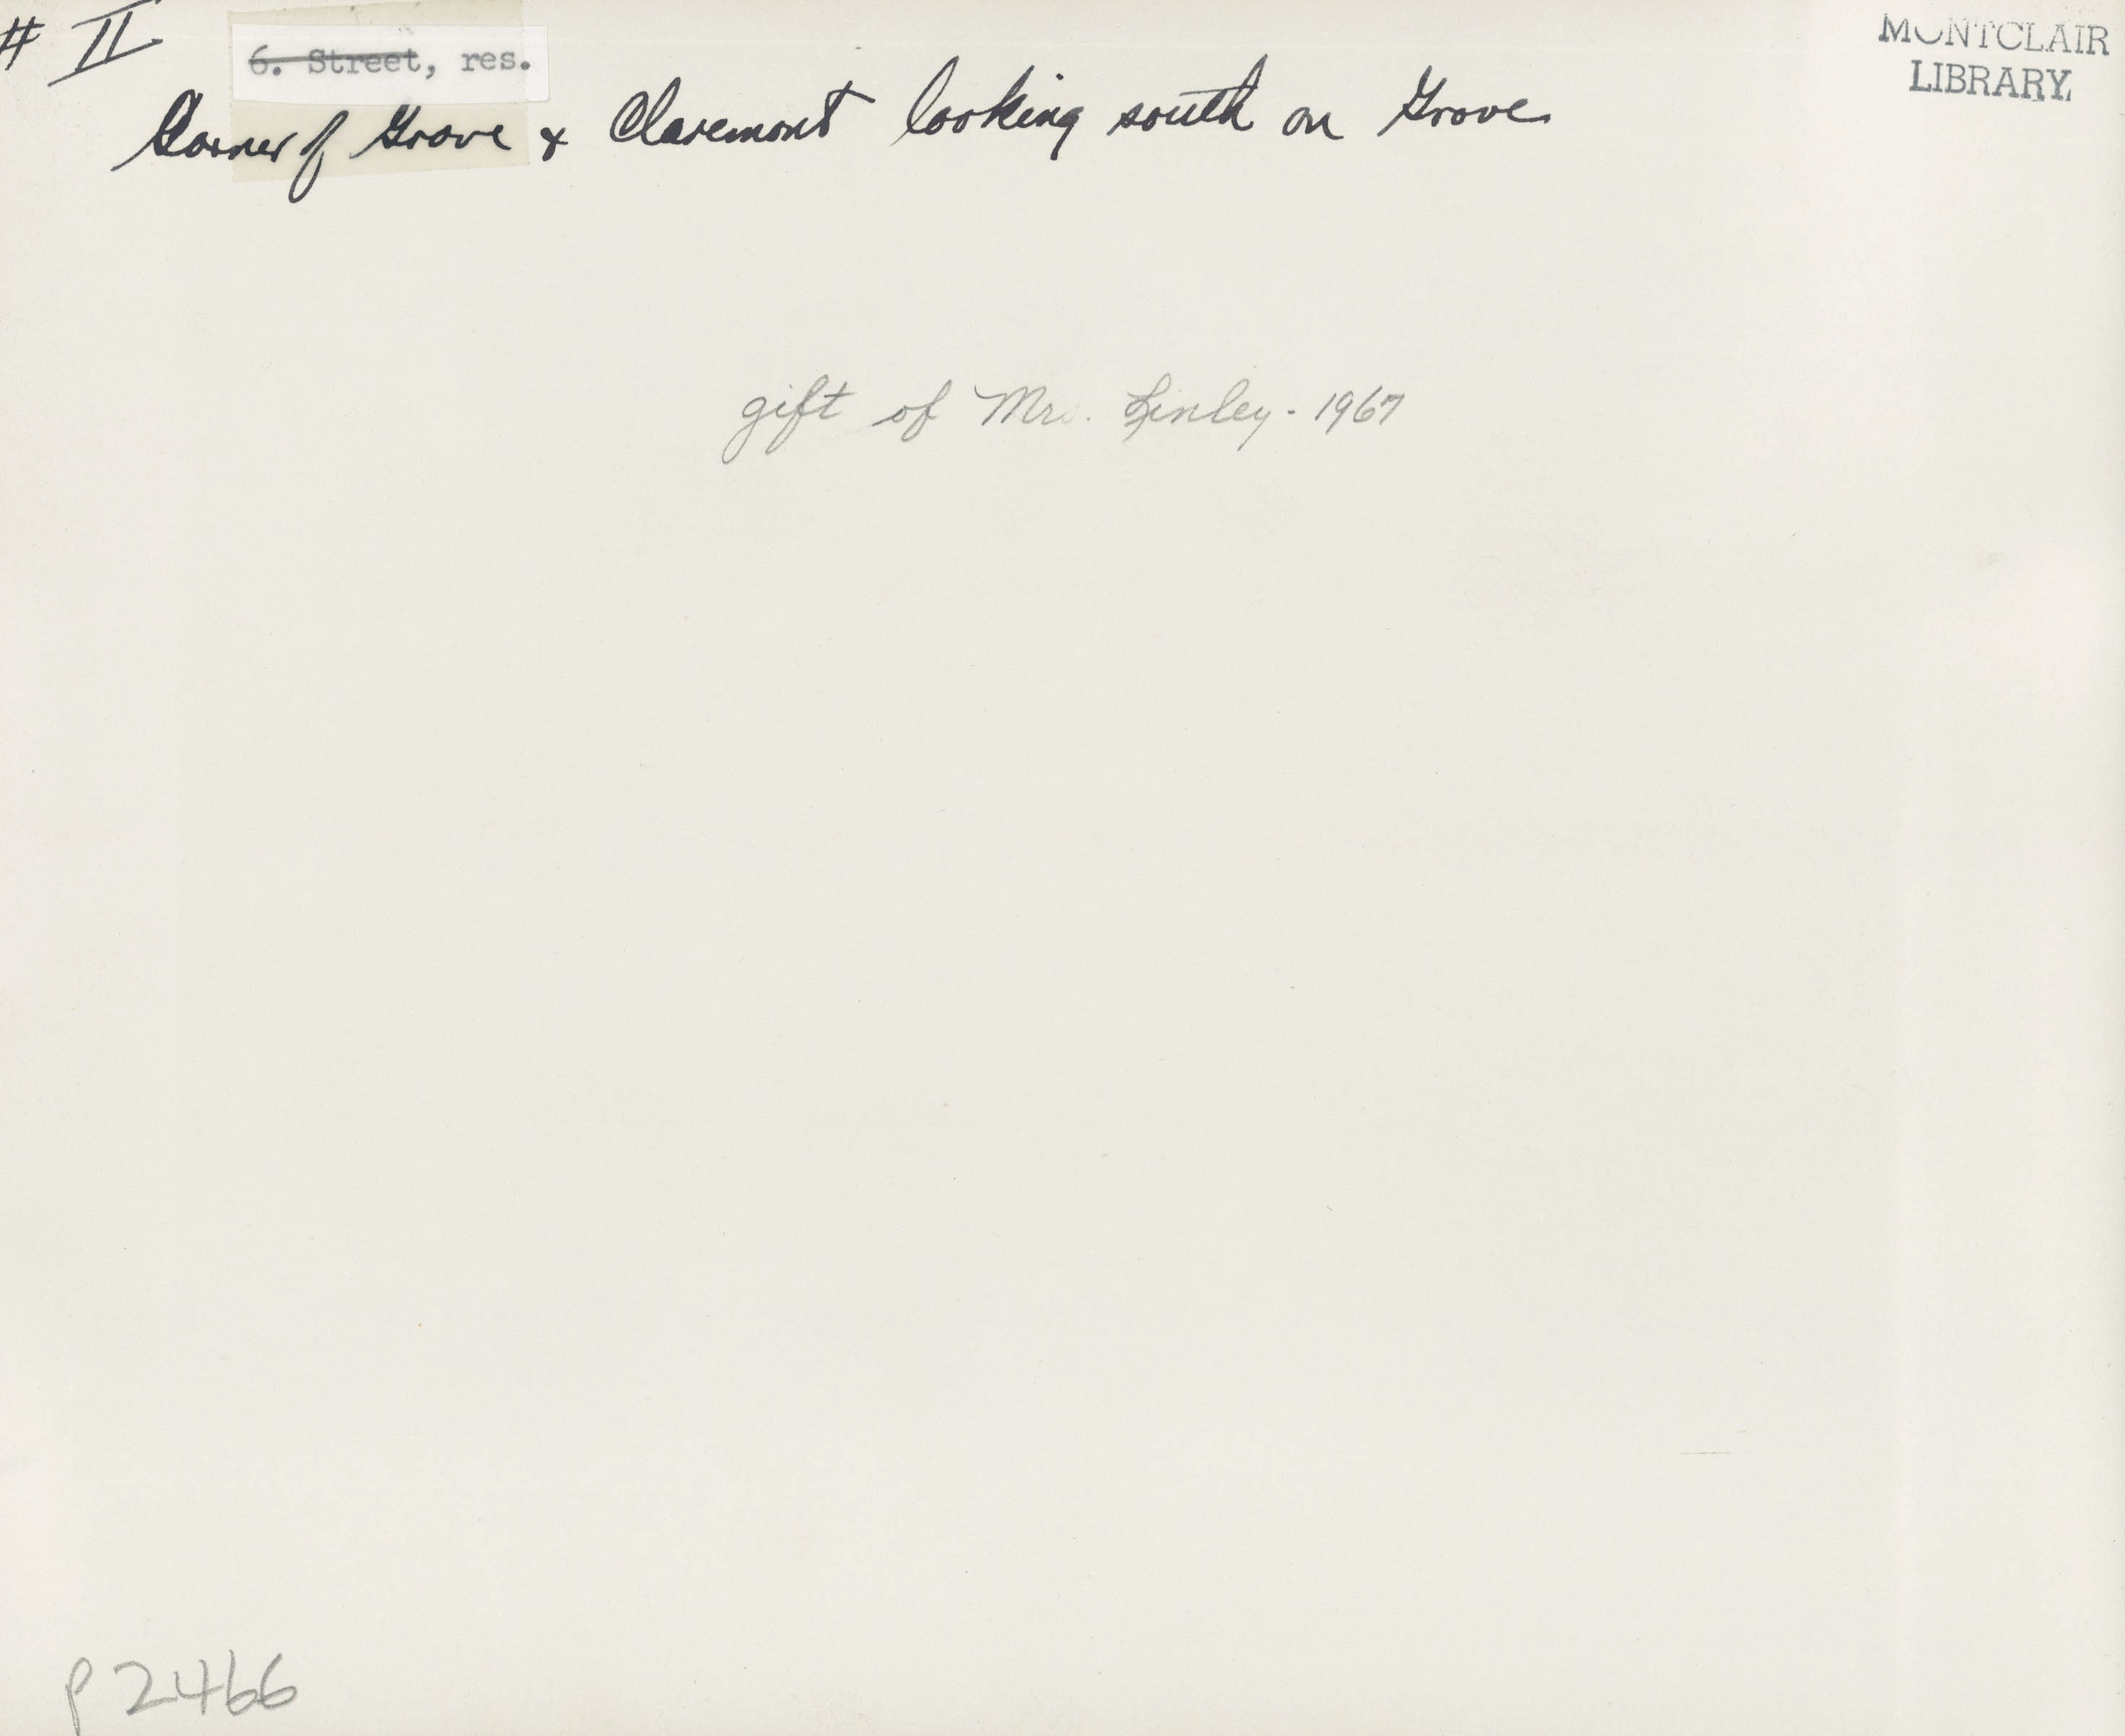 # II
6. Street, res.
MONTCLAIR
LIBRARY
Corner of Grove & Claremont looking south on Grove
gift of Mr. Finley - 1967
P2466